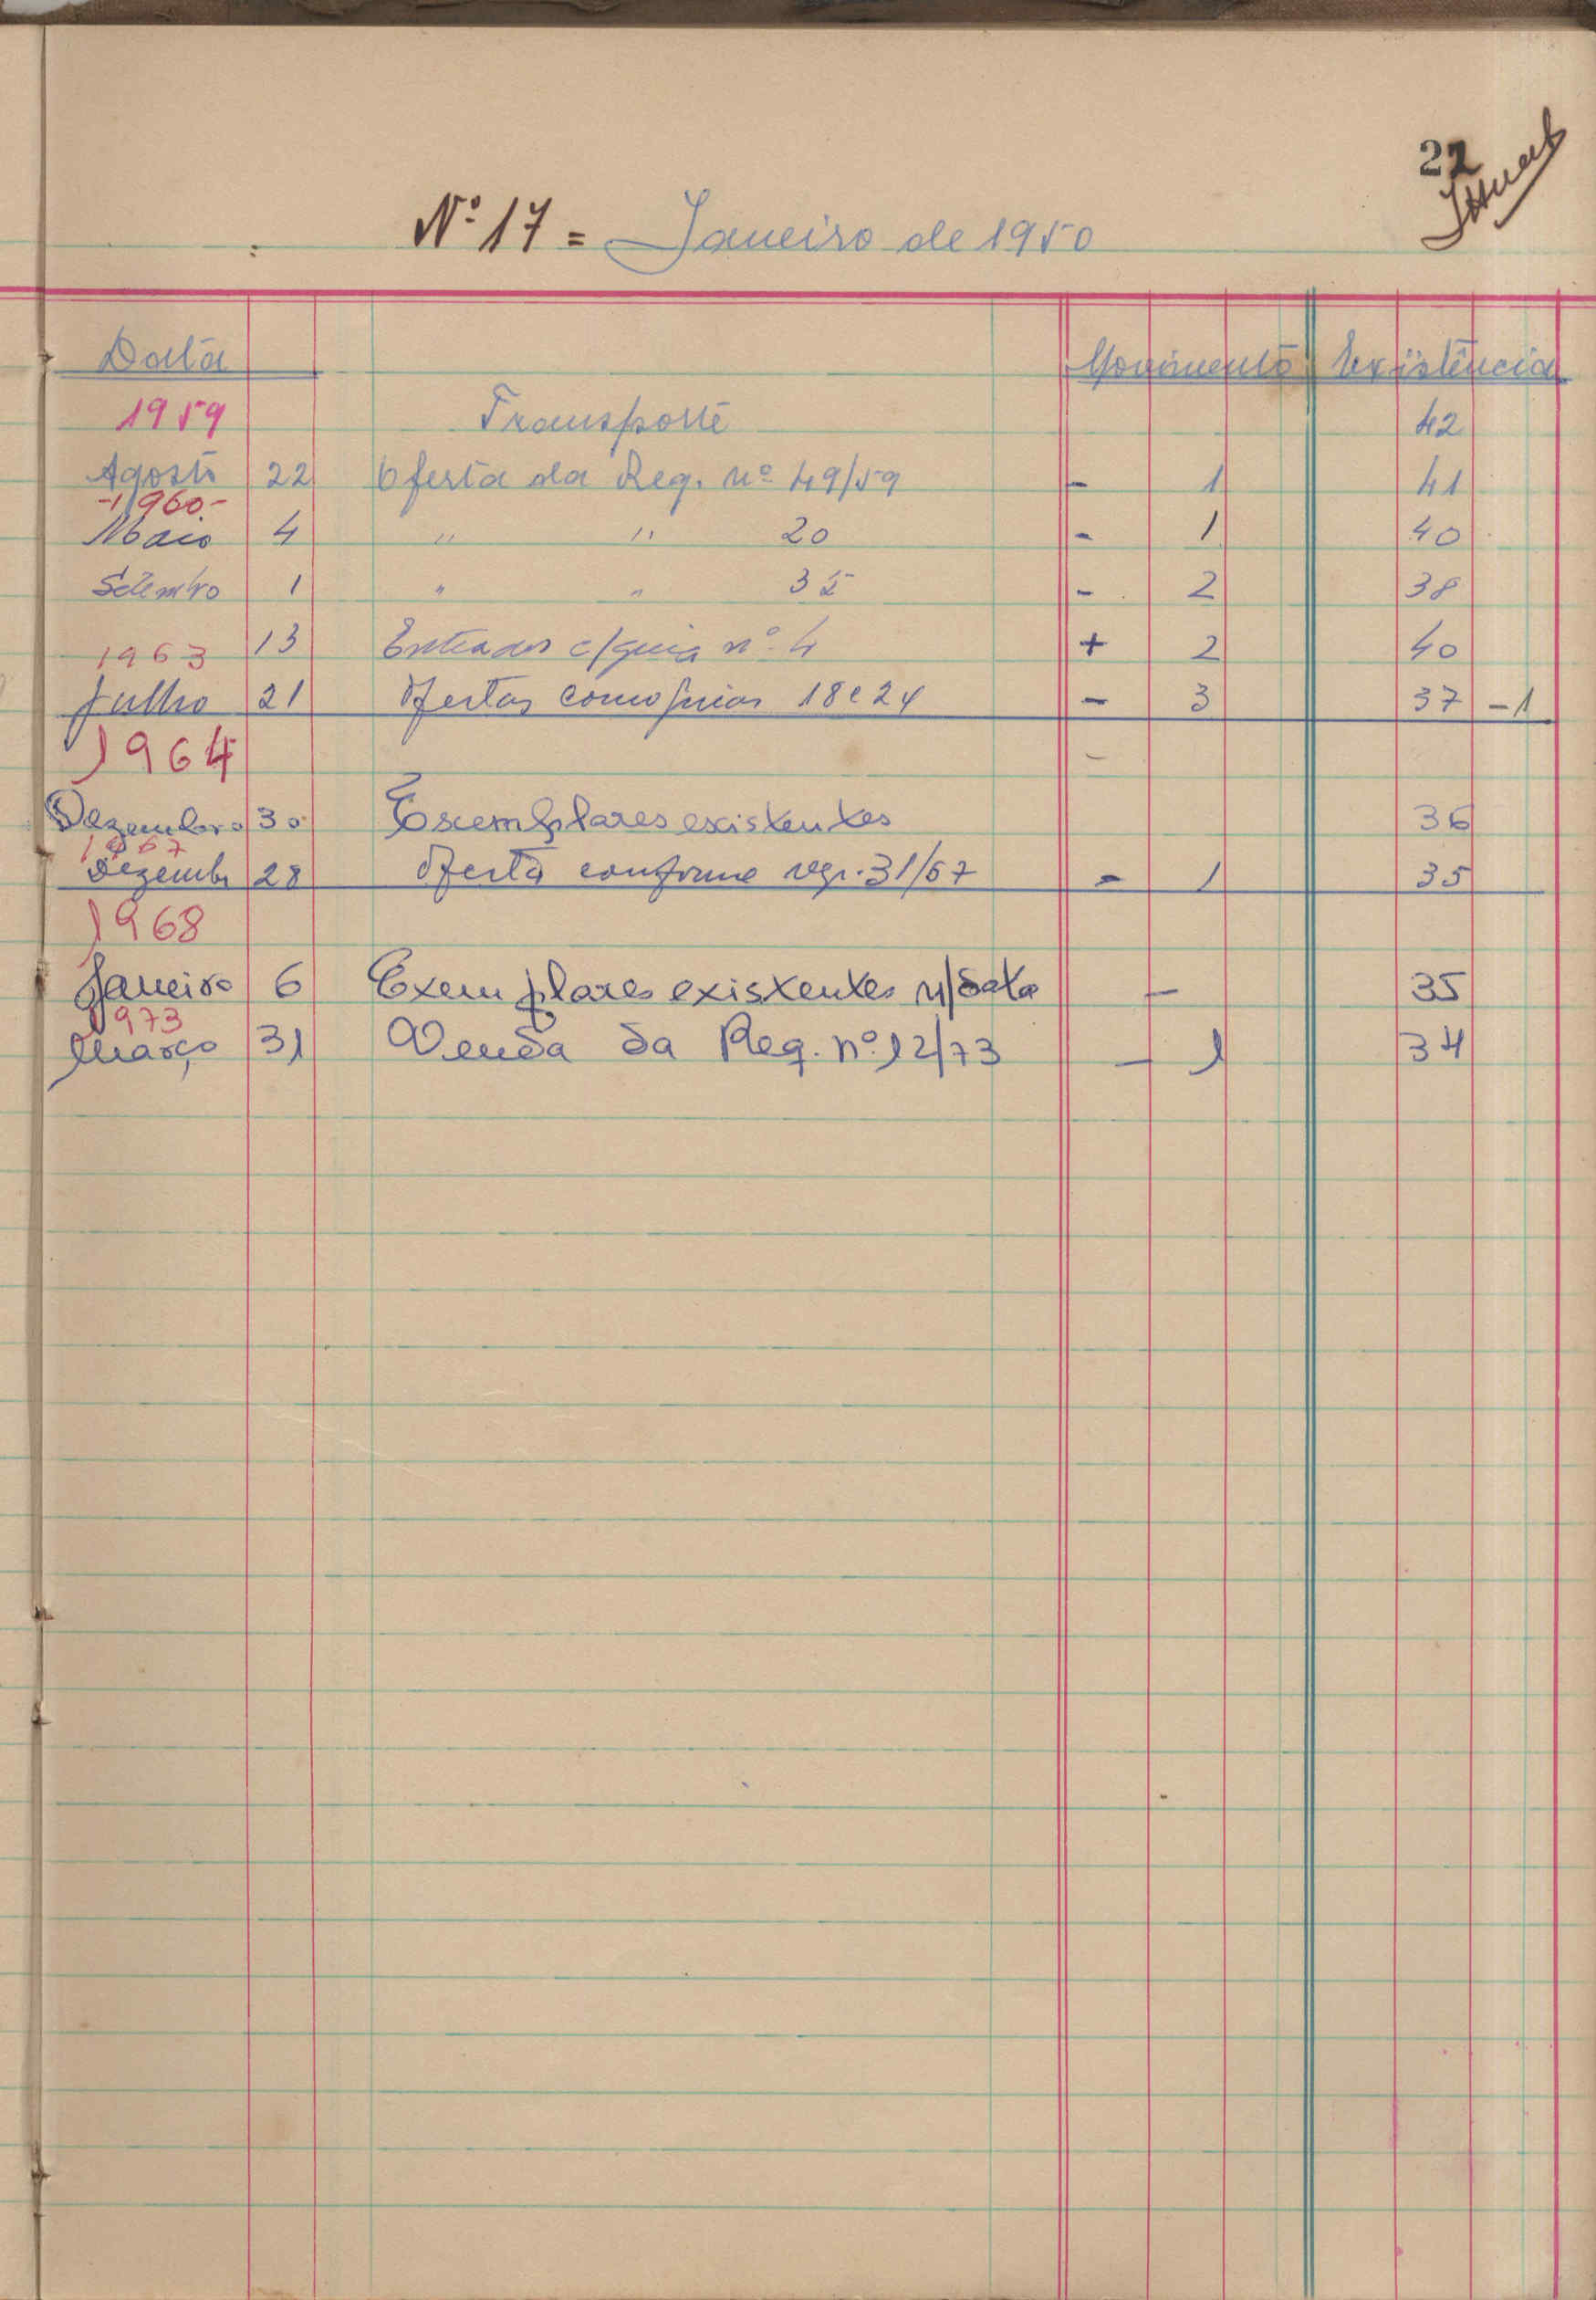 22
Nº 17 = Janeiro de 1950
Data Movimento Existência
1959 Transporte 42
Agosto 22 Oferta da Req. nº 49/59 - 1 41
-1960-
Maio 4 " " 20 - 1 40
Setembro 1 " " 35 - 2 38
13 Entradas c/guia nº 4 + 2 40
1963
Julho 21 Ofertas como guias 18 e 24 - 3 37 -1
1964 -
Dezembro 30 Exemplares existentes 36
1967
Dezembr 28 Oferta conforme reqr. 31/67 - 1 35
1968
Janeiro 6 Exemplares existentes n/data - 35
1973
Março 31 Venda da Req. nº 12/73 - 1 34